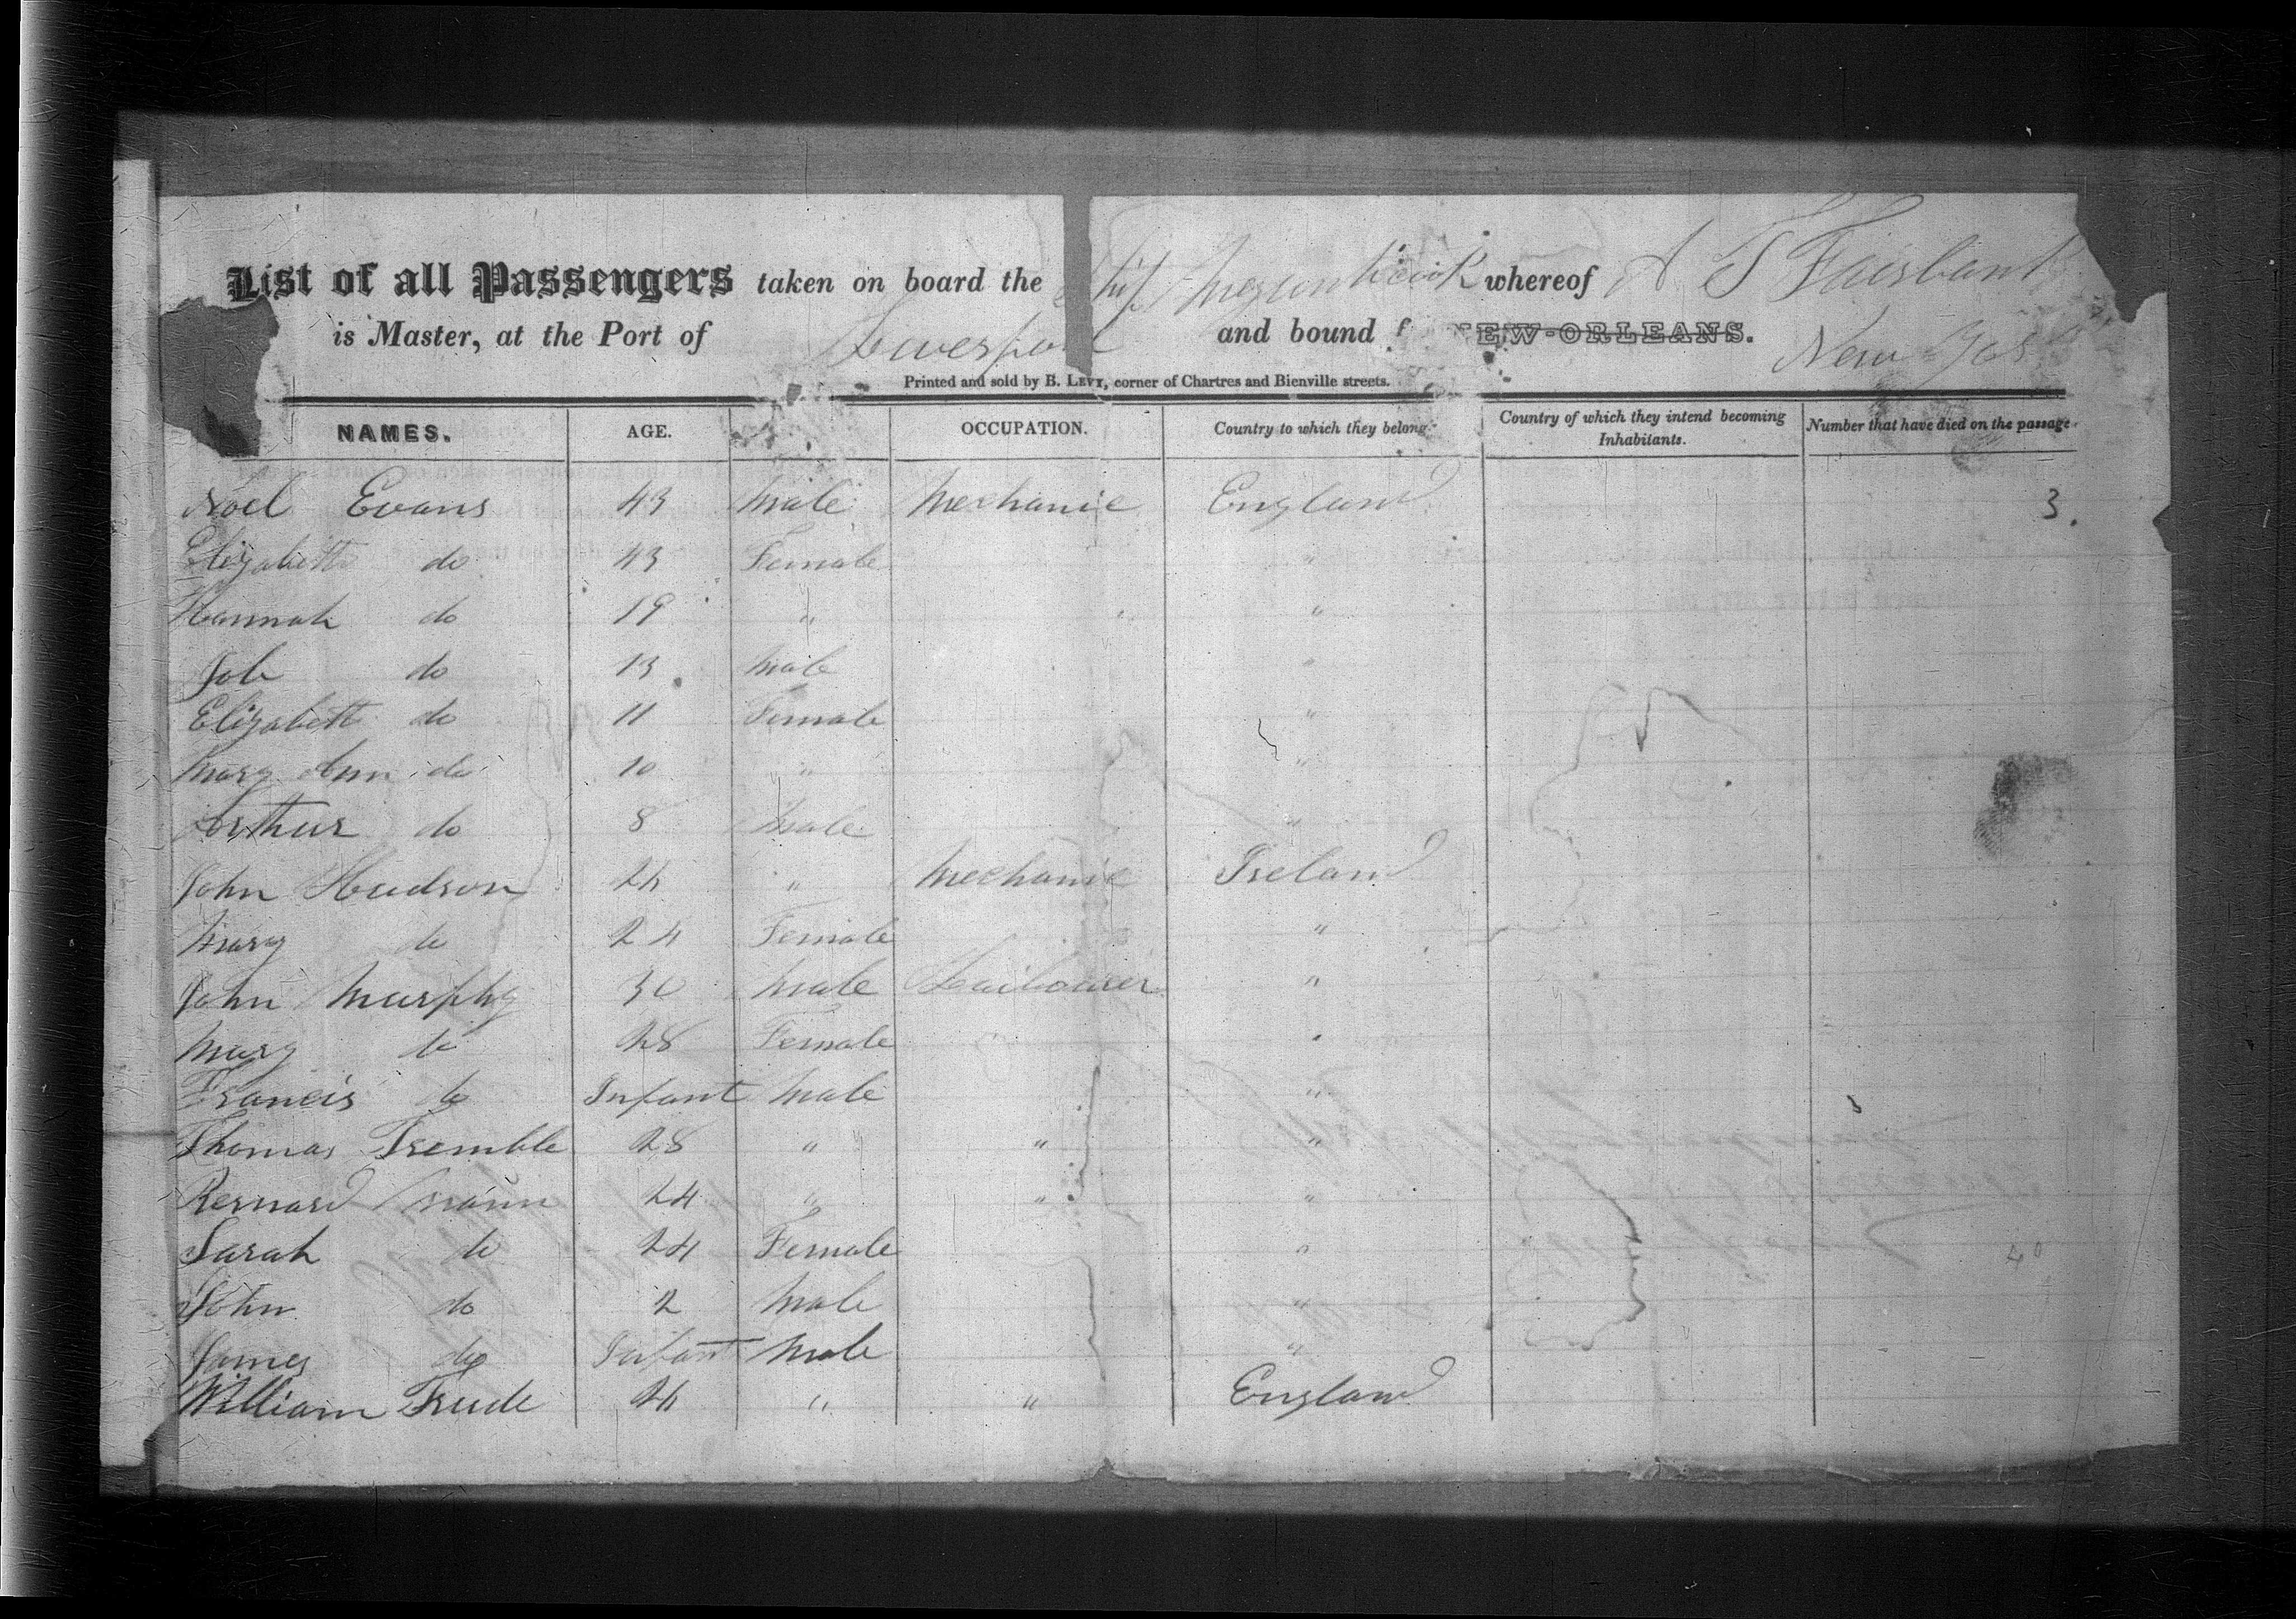 List of all Passengers taken on board the Ship Megunticook whereof A S Fairbank
is Master, at the Port of Liverpool and bound f NEW-ORLEANS. New York
Printed and sold by B. LEVY, corner of Chartres and Bienville streets.
NAMES. AGE. OCCUPATION. Country to which they belong. Country of which they intend becoming Inhabitants. Number that have died on the passage.
Noel Evans 43 Male Mechanic England 3.
Elizabeth do 43 Female "
Hannah do 19 " "
Job do 13 Male "
Elizabeth do 11 Female "
Mary Ann do 10 " "
Arthur do 8 Male "
John Hudson 24 " Mechanic Ireland
Mary do 24 Female "
John Murphy 30 Male "
Mary do 28 Female "
Francis do Infant Male "
Thomas Tremble 28 " " "
Bernard 24 " " "
Sarah do 24 Female "
John do 2 Male "
James do Infant Male "
William Trude 24 " " England